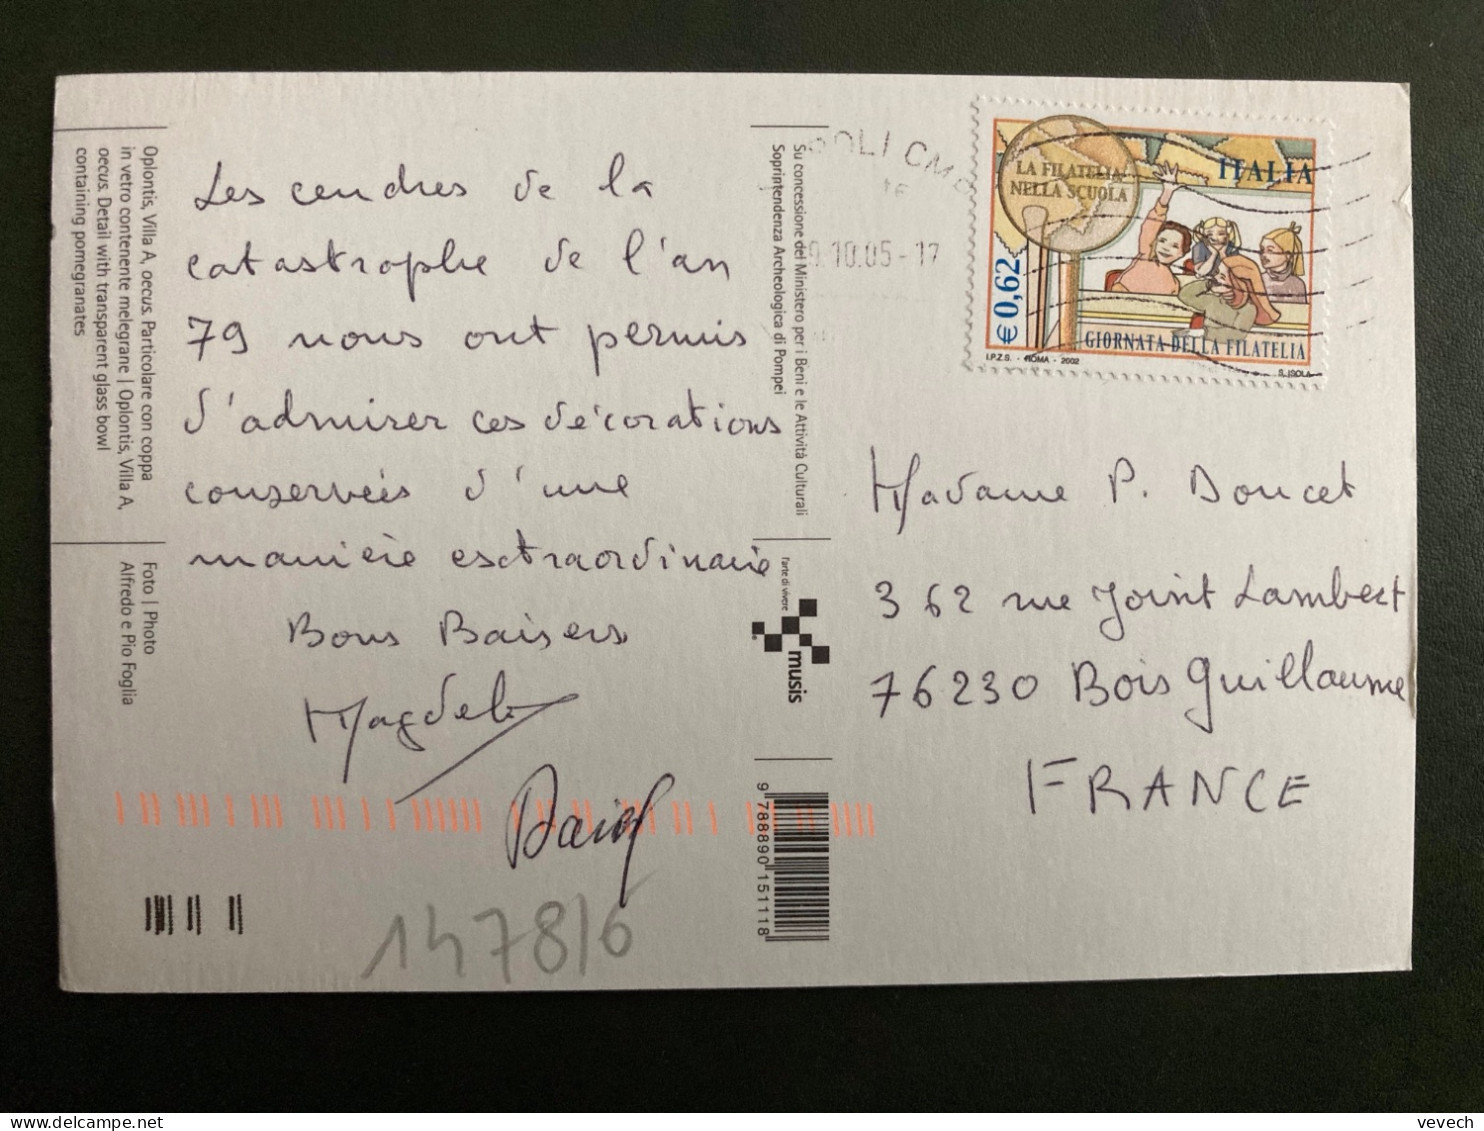 Oplontis, Villa A, oecus. Particolare con coppa
in vetro contenente melegrane | Oplontis, Villa A,
oecus. Detail with transparent glass bowl
containing pomegranates
Foto | Photo
Alfredo e Pio Foglia
Les cendres de la
catastrophe de l'an
79 nous ont permis
d'admirer ces décorations
conservées d'une
manière extraordinaire
Bons Baisers
Magdel
147816
Su concessione del Ministero per i Beni e le Attività Culturali
Soprintendenza Archeologica di Pompei
l'arte di vivere
musis
9 788890 151118
OLI CM
9.10.05-17
LA FILATELIA
NELLA SCUOLA
ITALIA
€ 0,62
GIORNATA DELLA FILATELIA
I.P.Z.S. - ROMA - 2002
S. ISOLA
Madame P. Doucet
362 rue Joint Lambert
76230 Bois Guillaume
FRANCE
vevech